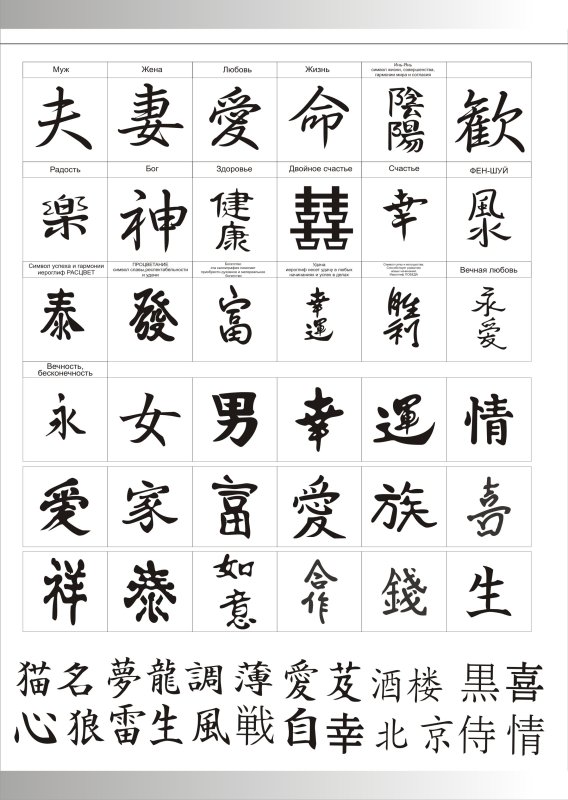 Муж Жена Любовь Жизнь Инь-Янь
символ жизни, совершенства,
гармонии мира и согласия
夫 妻 愛 命 陰陽 歓
Радость Бог Здоровье Двойное счастье Счастье ФЕН-ШУЙ
楽 神 健康 囍 幸 風水
Символ успеха и гармонии
иероглиф РАСЦВЕТ
ПРОЦВЕТАНИЕ
символ славы,респектабельности
и удачи
Богатство
Удача
иероглиф несет удачу в любых
начинаниях и успех в делах
Вечная любовь
泰 發 富 幸運 勝利 永愛
Вечность,
бесконечность
永 女 男 幸 運 情
愛 家 富 愛 族 喜
祥 泰 如意 合作 錢 生
猫 名 夢 龍 調 薄 愛 芨 酒 楼 黒 喜
心 狼 雷 生 風 戦 自 幸 北 京 侍 情